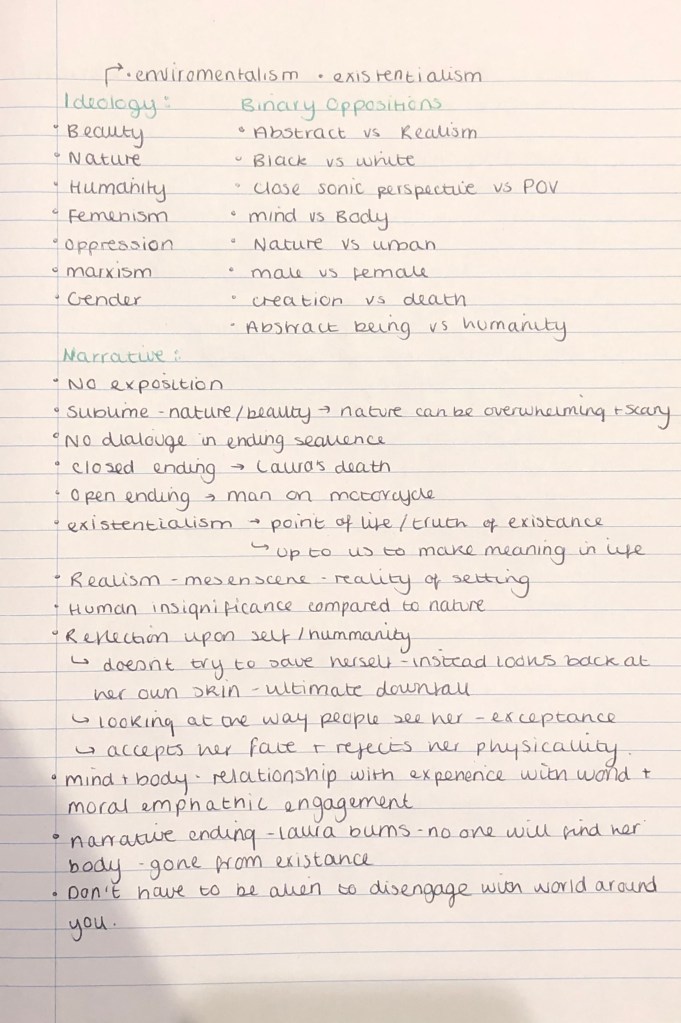 ↱ · enviromentalism · existentialism
Ideology: Binary Oppositions
• Beauty • Abstract vs Realism
• Nature • Black vs white
• Humanity • Close sonic perspective vs POV
• Femenism • mind vs Body
• oppression • Nature vs urban
• marxism • male vs female
• Gender • creation vs death
• Abstract being vs humanity
Narrative:
• No exposition
• Sublime - nature/beauty → nature can be overwhelming + scary
• No dialouge in ending sequence
• closed ending → Laura's death
• Open ending → man on motorcycle
• existentialism → point of life/truth of existance
↳ up to us to make meaning in life
• Realism - mesenscene - reality of setting
• Human insignificance compared to nature
• Reflection upon self/hummanity
↳ doesnt try to save herself - instead looks back at
her own skin - ultimate downfall
↳ looking at the way people see her - exceptance
↳ accepts her fate + rejects her physicality.
• mind + body - relationship with experience with world +
moral emphathic engagement
• narrative ending - laura burns - no one will find her
body - gone from existance
• Don't have to be alien to disengage with world around
you.